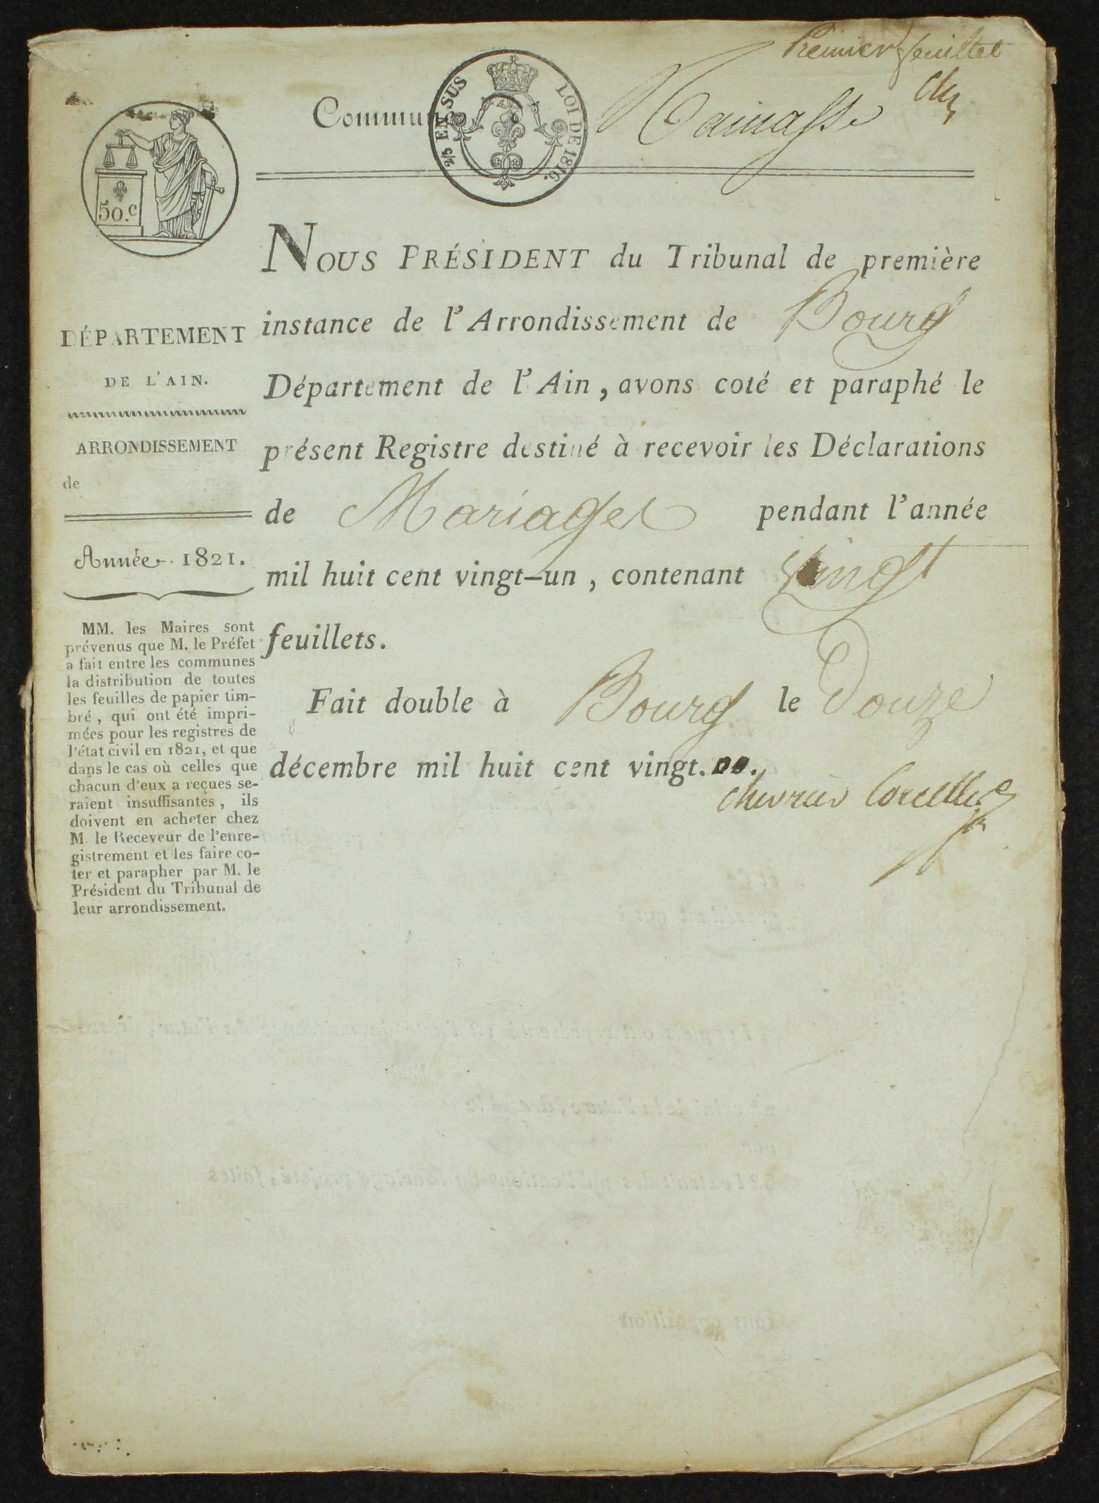 Premier feuillet
Commune
2/5 EN SUS
LOI DE 1816.
50.c
DÉPARTEMENT
DE L'AIN.
ARRONDISSEMENT
de
Année 1821.
MM. les Maires sont
prévenus que M. le Préfet
a fait entre les communes
la distribution de toutes
les feuilles de papier tim-
bré, qui ont été impri-
mées pour les registres de
l'état civil en 1821, et que
dans le cas où celles que
chacun d'eux a reçues se-
raient insuffisantes, ils
doivent en acheter chez
M. le Receveur de l'enre-
gistrement et les faire co-
ter et parapher par M. le
Président du Tribunal de
leur arrondissement.
NOUS PRÉSIDENT du Tribunal de première
instance de l'Arrondissement de Bourg
Département de l'Ain, avons coté et paraphé le
présent Registre destiné à recevoir les Déclarations
de Mariages pendant l'année
mil huit cent vingt-un, contenant vingt
feuillets.
Fait double à Bourg le Douze
décembre mil huit cent vingt.